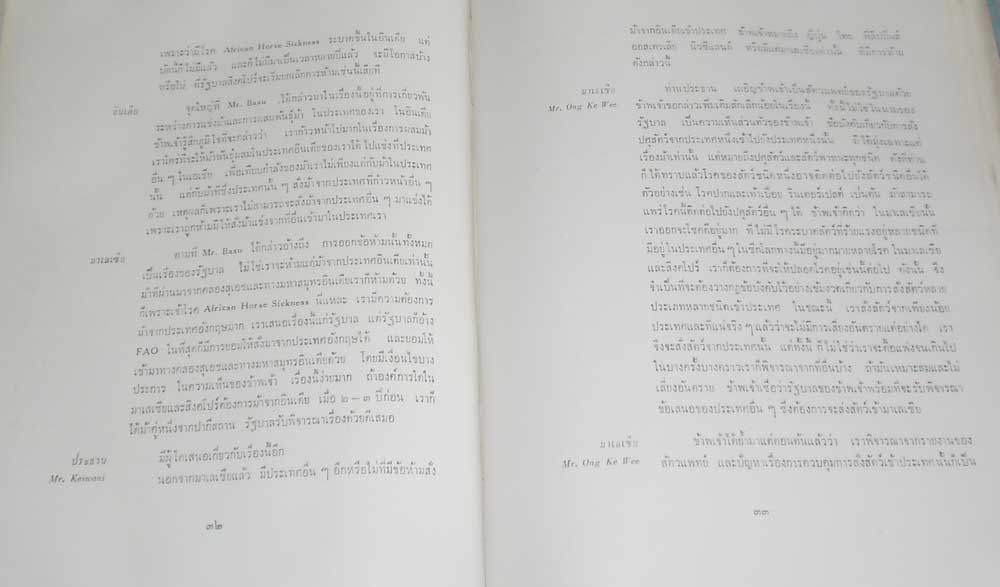 เพราะว่ามีโรค African Horse Sickness ระบาดขึ้นในอินเดีย แต่
บัดนี้ก็ไม่มีแล้ว และก็ไม่มีมาเป็นเวลาหลายปีแล้ว จะมีโอกาสบ้าง
หรือไม่ ที่รัฐบาลสิงคโปร์จะเริ่มยกเลิกการห้ามเช่นนี้เสียที
อินเดีย จุดใหญ่ที่ Mr. Basu ได้กล่าวมาในเรื่องนี้อยู่ที่การเกี่ยวพัน
ระหว่างการแข่งม้าและการผสมพันธุ์ม้า ในประเทศของเรา ในอินเดีย
ข้าพเจ้ารู้สึกภูมิใจที่จะกล่าวว่า เราก้าวหน้าไปมากในเรื่องการผสมม้า
เราใคร่ที่จะให้ม้าพันธุ์ผสมในประเทศอินเดียของเราได้ ไปแข่งที่ประเทศ
อื่น ๆ ในเอเซีย เพื่อเทียบกำลังของม้าเราไม่เพียงแต่กับม้าในประเทศ
นั้น แต่กับม้าที่ซึ่งประเทศนั้น ๆ สั่งม้าจากประเทศที่ก้าวหน้าอื่น ๆ
ด้วย เหตุผลก็เพราะเราไม่สามารถจะสั่งม้าจากประเทศอื่น ๆ มาแข่งได้
เพราะเราถูกห้ามมิให้สั่งม้าแข่งจากที่อื่นเข้ามาในประเทศเรา
มาเลเซีย ตามที่ Mr. Basu ได้กล่าวอ้างถึง การออกข้อห้ามนั้นทั้งหมด
เป็นเรื่องของรัฐบาล ไม่ใช่เราจะห้ามแต่ม้าจากประเทศอินเดียเท่านั้น
ม้าที่ผ่านมาจากคลองสุเอซและทางมหาสมุทรอินเดียเราก็ห้ามด้วย ทั้งนี้
ก็เพราะเจ้าโรค African Horse Sickness นี่แหละ เรามีความต้องการ
ม้าจากประเทศอังกฤษมาก เราเสนอเรื่องนี้แก่รัฐบาล แต่รัฐบาลก็อ้าง
FAO ในที่สุดก็มีการยอมให้สั่งม้าจากประเทศอังกฤษได้ และยอมให้
เข้ามาทางคลองสุเอซและทางมหาสมุทรอินเดียด้วย โดยมีเงื่อนไขบาง
ประการ ในความเห็นของข้าพเจ้า เรื่องนี้ง่ายมาก ถ้าองค์การใดใน
มาเลเซียและสิงคโปร์ต้องการม้าจากอินเดีย เมื่อ ๒ – ๓ ปีก่อน เราก็
ได้ม้าคู่หนึ่งจากปากีสถาน รัฐบาลรับพิจารณาเรื่องด้วยดีเสมอ
ประธาน มีผู้ใดเสนอเกี่ยวกับเรื่องนี้อีก
Mr. Keiwani นอกจากมาเลเซียแล้ว มีประเทศอื่น ๆ อีกหรือไม่ที่มีข้อห้ามสั่ง
๓๒
ม้าจากอินเดียเข้าประเทศ ข้าพเจ้าหมายถึง ญี่ปุ่น ไทย ฟิลิปปินส์
ออสเตรเลีย นิวซีแลนด์ หรือมีแต่มาเลเซียแห่งนั้น ที่มีการห้าม
ดังกล่าวนี้
มาเลเซีย ท่านประธาน เผอิญข้าพเจ้าเป็นสัตวแพทย์ของรัฐบาลด้วย
Mr. Ong Ke Wee ข้าพเจ้าขอกล่าวเพิ่มเติมสักเล็กน้อยในเรื่องนี้ ทั้งนี้ไม่ใช่ในนามของ
รัฐบาล เป็นความเห็นส่วนตัวของข้าพเจ้า ข้อบังคับเกี่ยวกับการสั่ง
ปศุสัตว์จากประเทศหนึ่งเข้าไปยังประเทศหนึ่งนั้น มิได้มุ่งเฉพาะแต่
เรื่องม้าเท่านั้น แต่หมายถึงปศุสัตว์และสัตว์พาหนะทุกชนิด ดังที่ท่าน
ก็ได้ทราบแล้วโรคของสัตว์ชนิดหนึ่งอาจติดต่อไปยังสัตว์ชนิดอื่นได้
ตัวอย่างเช่น โรคปากและเท้าเปื่อย รินเดอร์เปสต์ เป็นต้น ม้าสามารถ
แพร่โรคนี้ติดต่อไปยังปศุสัตว์อื่น ๆ ได้ ข้าพเจ้าคิดว่า ในมาเลเซียนั้น
เราออกจะโชคดีอยู่มาก ที่ไม่มีโรคระบาดสัตว์ที่ร้ายแรงอยู่หลายชนิดที่
มีอยู่ในประเทศอื่น ๆ ในซีกโลกทางนี้มีอยู่มากมายหลายโรค ในมาเลเซีย
และสิงคโปร์ เราก็ต้องการที่จะให้ปลอดโรคอยู่เช่นนี้ต่อไป ดังนั้น จึง
จำเป็นที่จะต้องวางกฎข้อบังคับไว้อย่างเข้มงวดเกี่ยวกับการสั่งสัตว์หลาย
ประเภทหลายชนิดเข้าประเทศ ในขณะนี้ เราสั่งสัตว์จากเพียงน้อย
ประเทศและที่แน่จริง ๆ แล้วว่าจะไม่มีการเสี่ยงอันตรายแต่อย่างใด เรา
จึงจะสั่งสัตว์จากประเทศนั้น แต่ทั้งนี้ ก็ไม่ใช่ว่าเราจะดื้อแพ่งจนเกินไป
ในบางครั้งบางคราวเราก็พิจารณาจากที่อื่นบ้าง ถ้ามันเหมาะสมและไม่
เสี่ยงอันตราย ข้าพเจ้าเชื่อว่ารัฐบาลของข้าพเจ้าพร้อมที่จะรับพิจารณา
ข้อเสนอของประเทศอื่น ๆ ซึ่งต้องการจะส่งสัตว์เข้ามาเลเซีย
มาเลเซีย ข้าพเจ้าได้ย้ำมาแต่ตอนต้นแล้วว่า เราพิจารณาจากรายงานของ
Mr. Ong Ke Wee สัตวแพทย์ และปัญหาเรื่องการควบคุมการสั่งสัตว์เข้าประเทศนั้นก็เป็น
๓๓